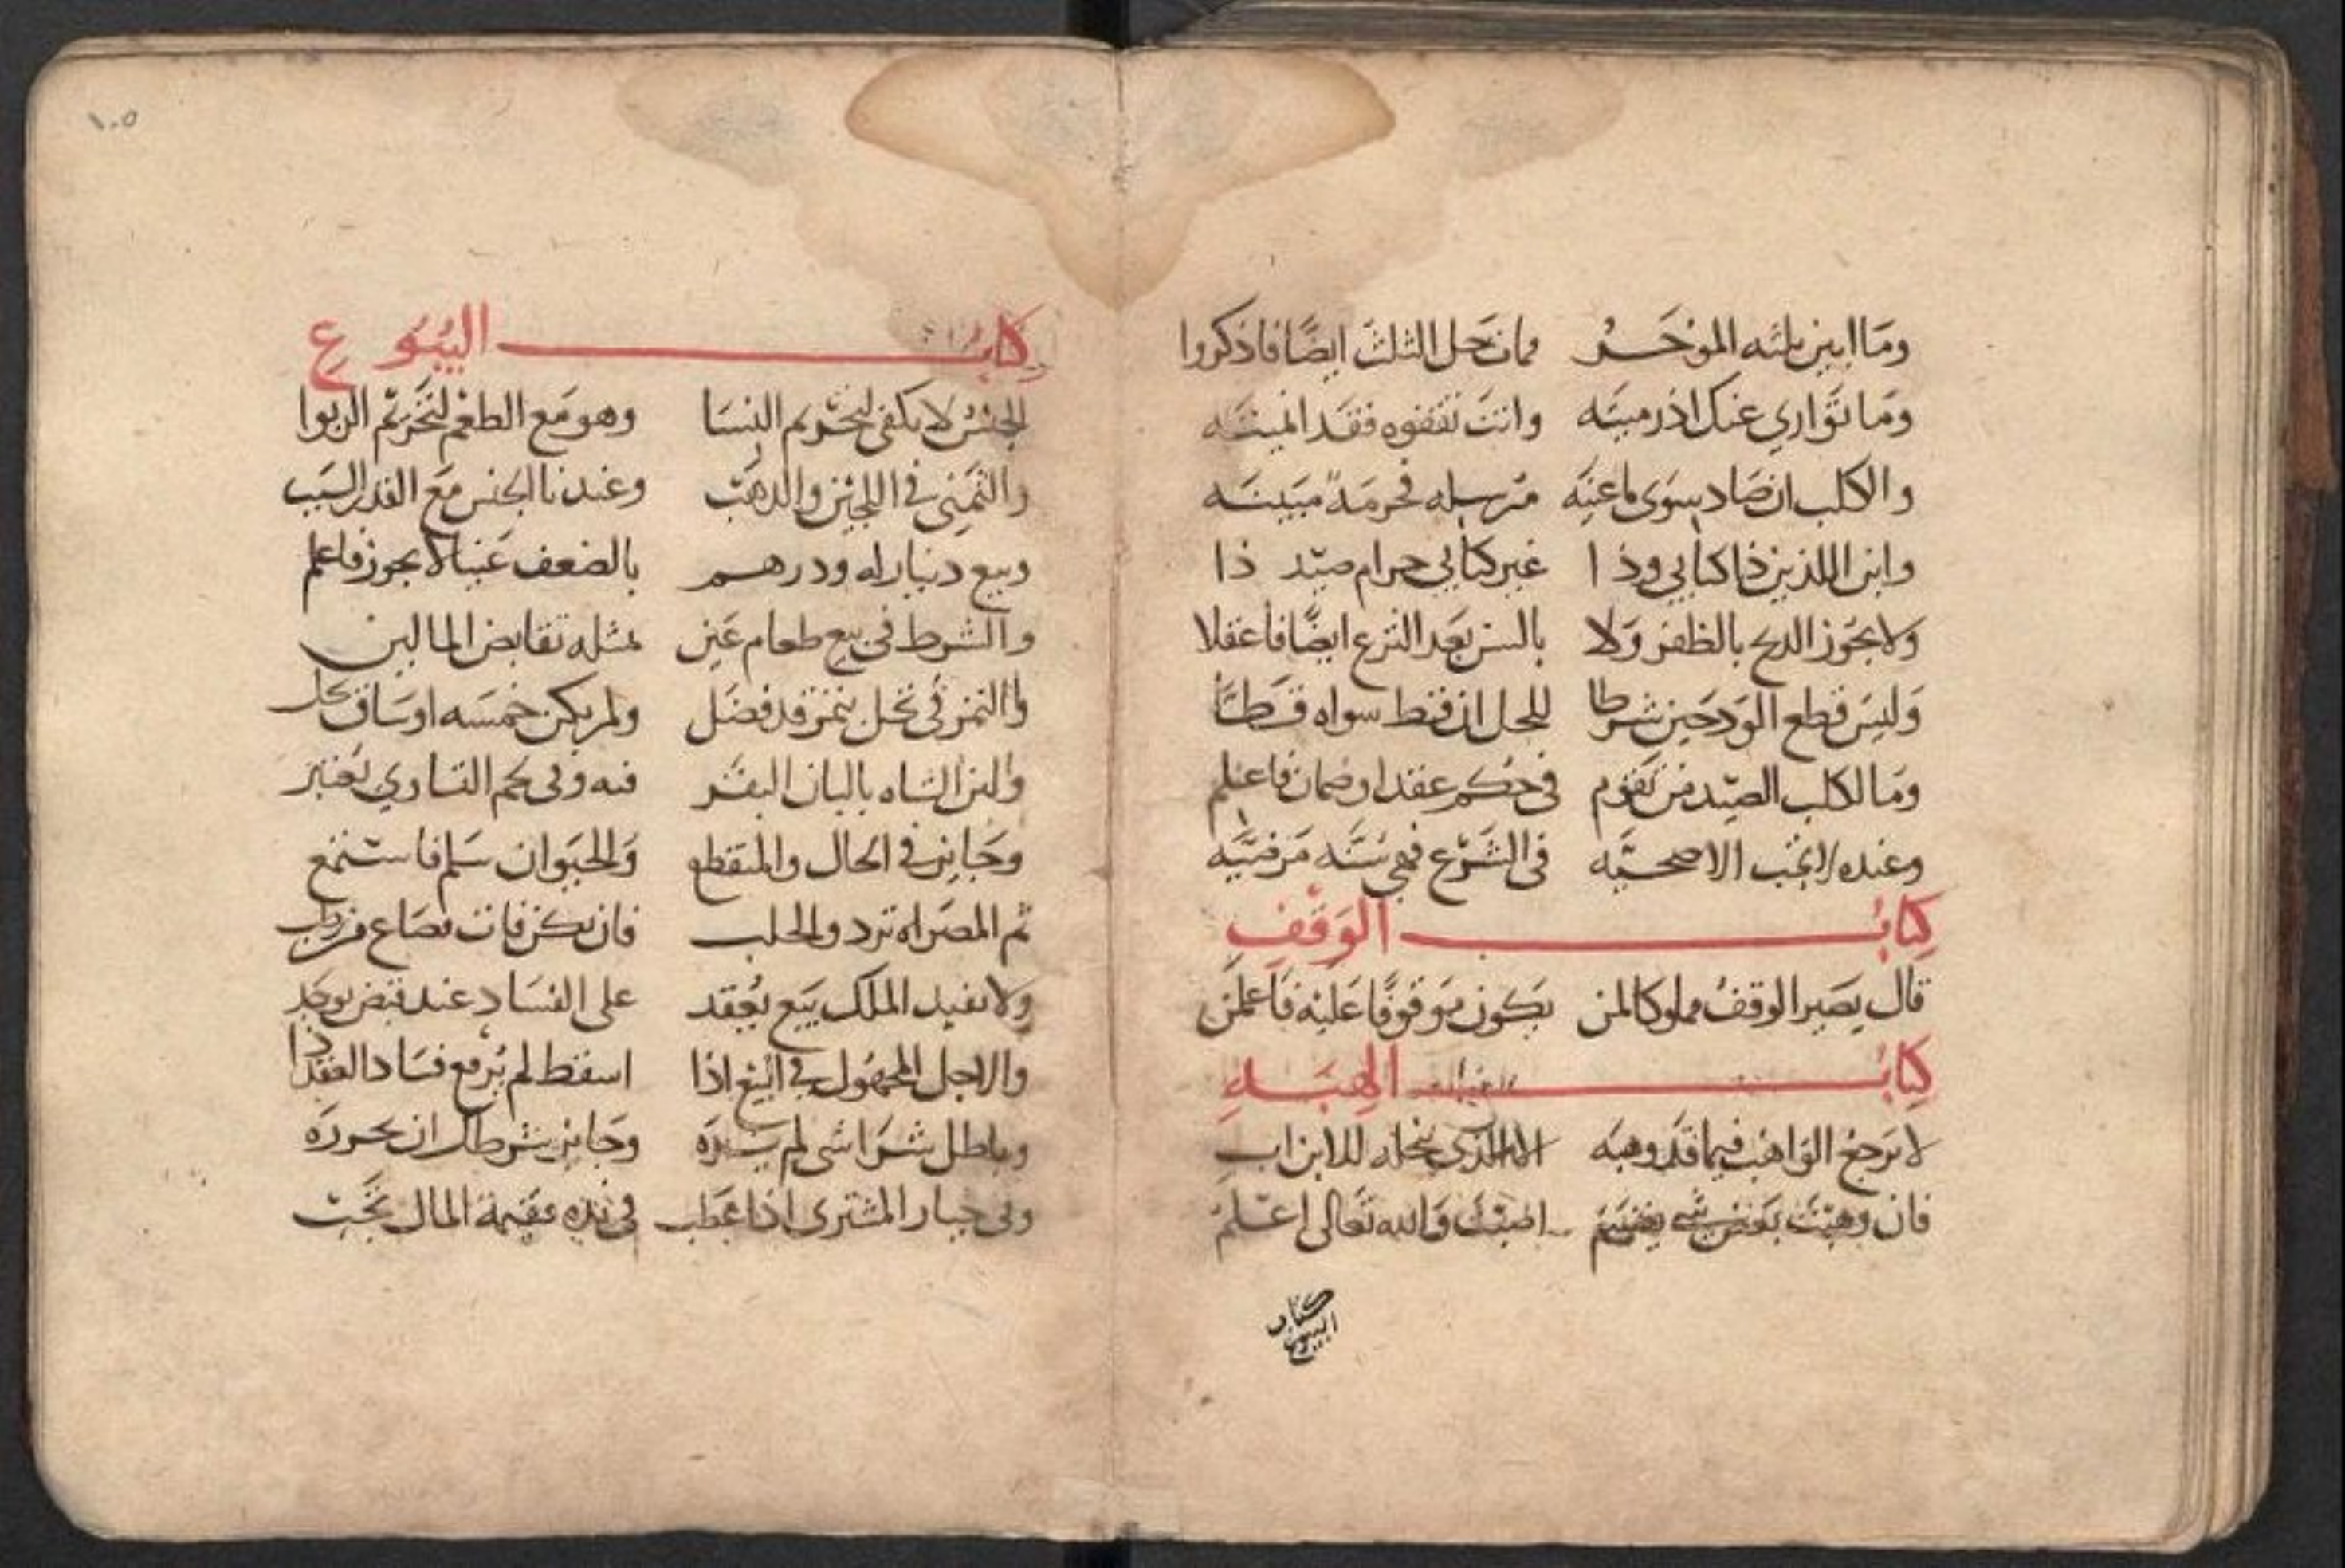 وما ابين ثلثه الموخر فان حل الثلث ايضا فاذكروا
وما تواري عنك اذ رميته وانت تقفوه فقد ابنته
والكلب ان صاد سوى ما عينه مرسله فحرمة مبينه
وابن اللذين ذا كتابي وذا غير كتابي حرام صيد ذا
ولا يجوز الذبح بالظفر ولا بالسن بعد النزع ايضا فاعقلا
وليس قطع الودجين شرطا للحل ان قط سواه قطا
وما لكلب الصيد من تقوم في حكم عقد او ضمان فاعلم
وعنده لا يجب الاضحيه في الشرع فهي سنه مرضيه
كتاب الوقف
قال يصير الوقف مملوكا لمن يكون موقوفا عليه فاعلمن
كتاب الهبه
لا يرجع الواهب فيما قد وهبه الا الذي ينحله للابن اب
فان وهبت بعض شي يقسم والله تعالى اعلم
كتاب
البيوع
١٠٥
كتاب البيوع
الجنس لا يكفي لتحريم النسا وهو مع الطعم لتحريم الربوا
والثمني في اللجين والذهب وعندنا الجنس مع القدر السبب
وبيع دينار له ودرهم بالضعف عينا لا يجوز فاعلم
والشرط في بيع طعام عين بمثله تقابض المالين
والتمر في نخل بتمر قد فضل ولم يكن خمسه اوساق
ولبن الشاه بالبان البقر فنه وفي حكم التساوي يعتبر
وجايز في الحال والمنقطع والحيوان سلم فاستمع
ثم المصراه ترد والحلب فان يكن فات فصاع من رطب
ولا يفيد الملك بيع يعقد على الفساد عند قبض يوجد
والاجل المجهول في البيع اذا اسقط لم يرفع فساد العقد ذا
وباطل شرا شي لم يره وجايز شرطك ان يحرره
وفي خيار المشتري اذا عطب في يده فقيمة المال تجب